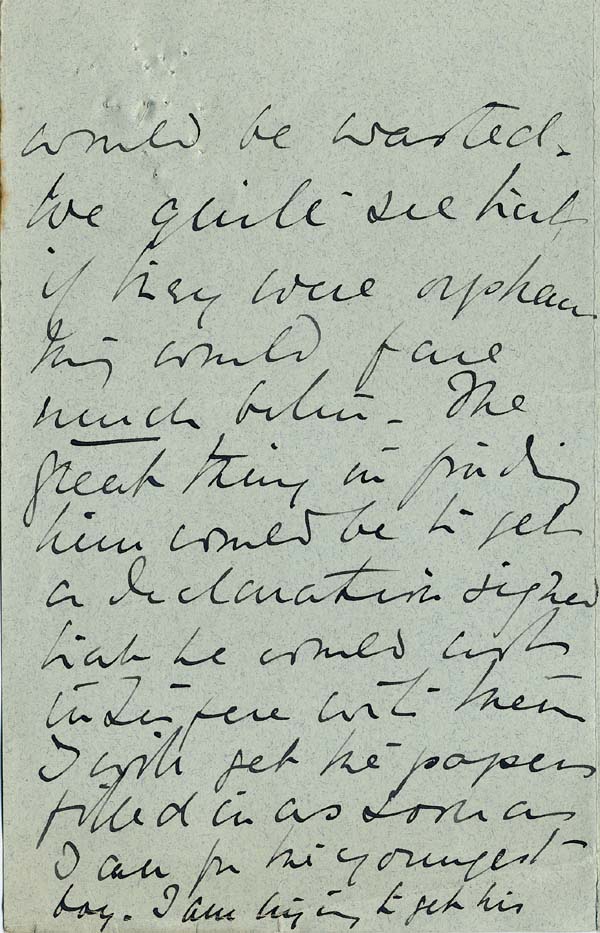 would be wasted.
We quite see that
if they were orphans
they would fare
much better. The
great thing in finding
him would be to get
a declaration signed
that he would not
interfere with them
I will get the papers
filled in as soon as
I can for the youngest
boy. I am trying to get his